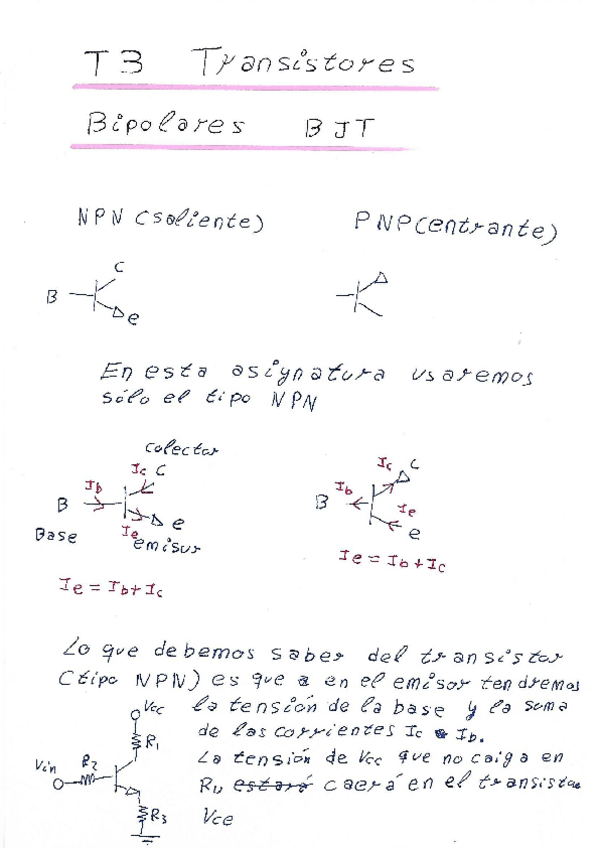 T3 Transistores
Bipolares BJT
NPN (saliente) PNP (entrante)
C
B
e
En esta asignatura usaremos
sólo el tipo NPN
colector
Ic C
Ib
B
Base
Ie
e
emisor
Ie = Ib + Ic
Ic C
Ib
B
Ie
e
Ie = Ib + Ic
Lo que debemos saber del transistor
(tipo NPN) es que en el emisor tendremos
la tensión de la base y la suma
de las corrientes Ic Ib.
La tensión de Vcc que no caiga en
caerá en el transistor
Vce
Vcc
R1
Vin
R2
R3